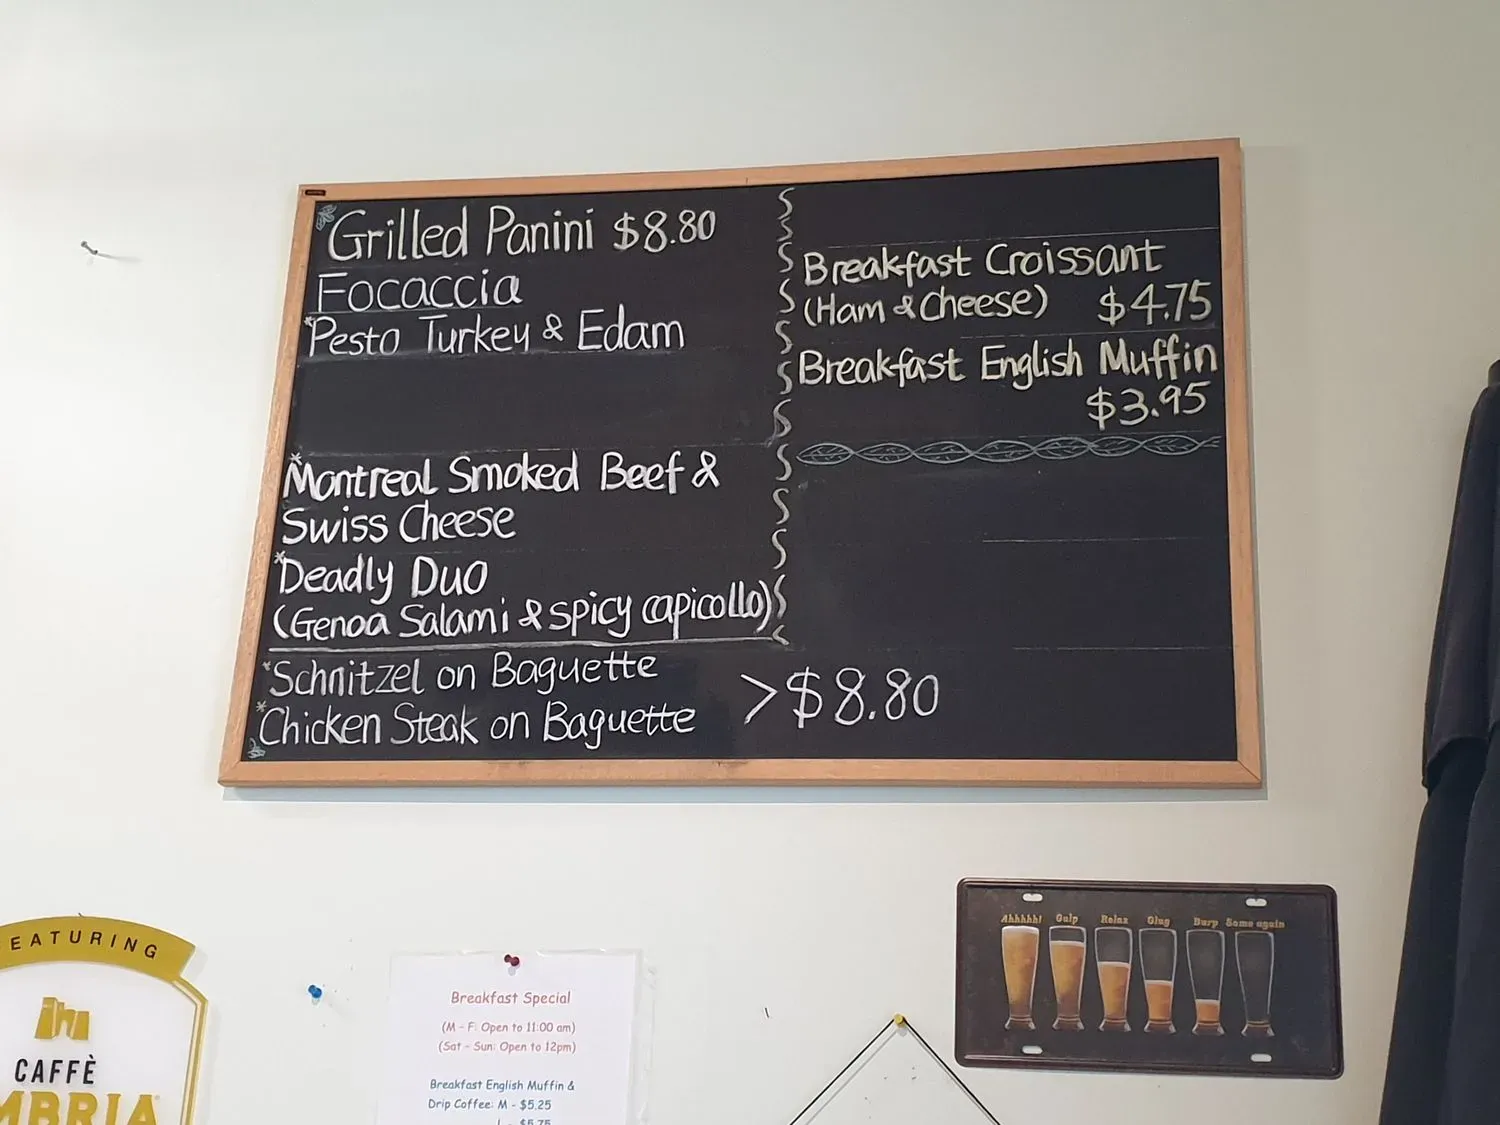 Grilled Panini $8.80
Focaccia
*Pesto Turkey & Edam
*Montreal Smoked Beef &
Swiss Cheese
*Deadly Duo
(Genoa Salami & spicy capicollo)
*Schnitzel on Baguette
*Chicken Steak on Baguette
>$8.80
Breakfast Croissant
(Ham & Cheese) $4.75
Breakfast English Muffin
$3.95
EATURING
CAFFÈ
MBRIA
Breakfast Special
(M - F: Open to 11:00 am)
(Sat - Sun: Open to 12pm)
Breakfast English Muffin &
Drip Coffee: M - $5.25
L - $5.75
Ahhhhh! Gulp Relax Glug Burp Same again